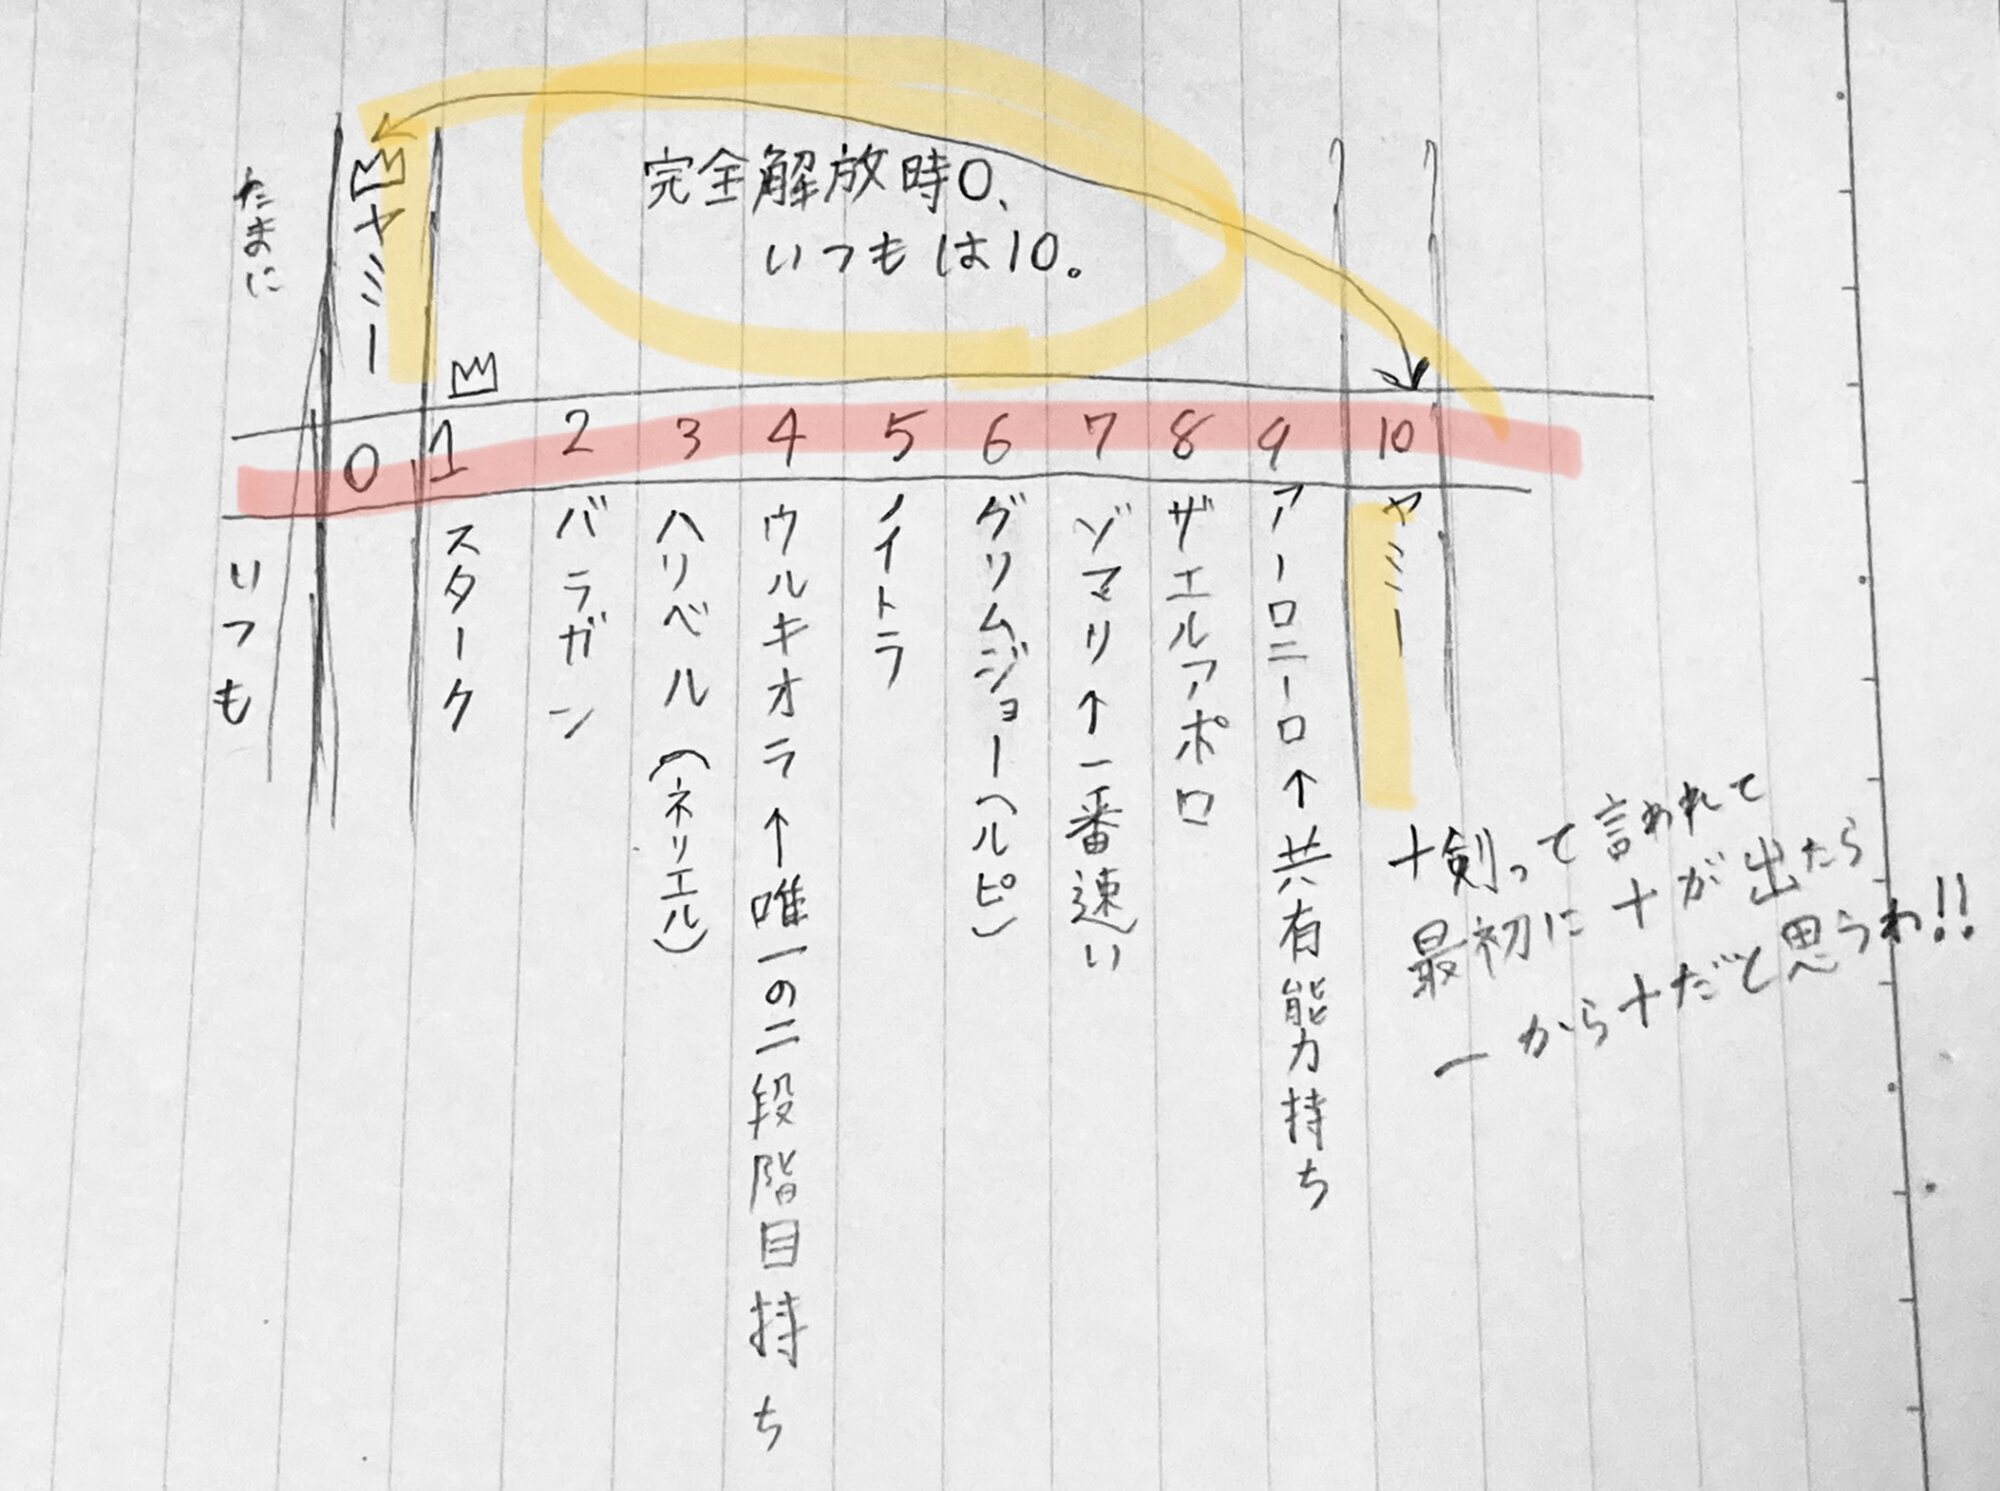 完全解放時0、
いつもは10。
たまに
ヤミー
0 1 2 3 4 5 6 7 8 9 10
いつも
スターク
バラガン
ハリベル(ネリエル)
ウルキオラ↑唯一の二段階目持ち
ノイトラ
グリムジョー(ルピ)
ゾマリ↑一番速い
ザエルアポロ
アーロニーロ↑共有能力持ち
ヤミー
十剣って言われて
最初に十が出たら
一から十だと思うわ!!